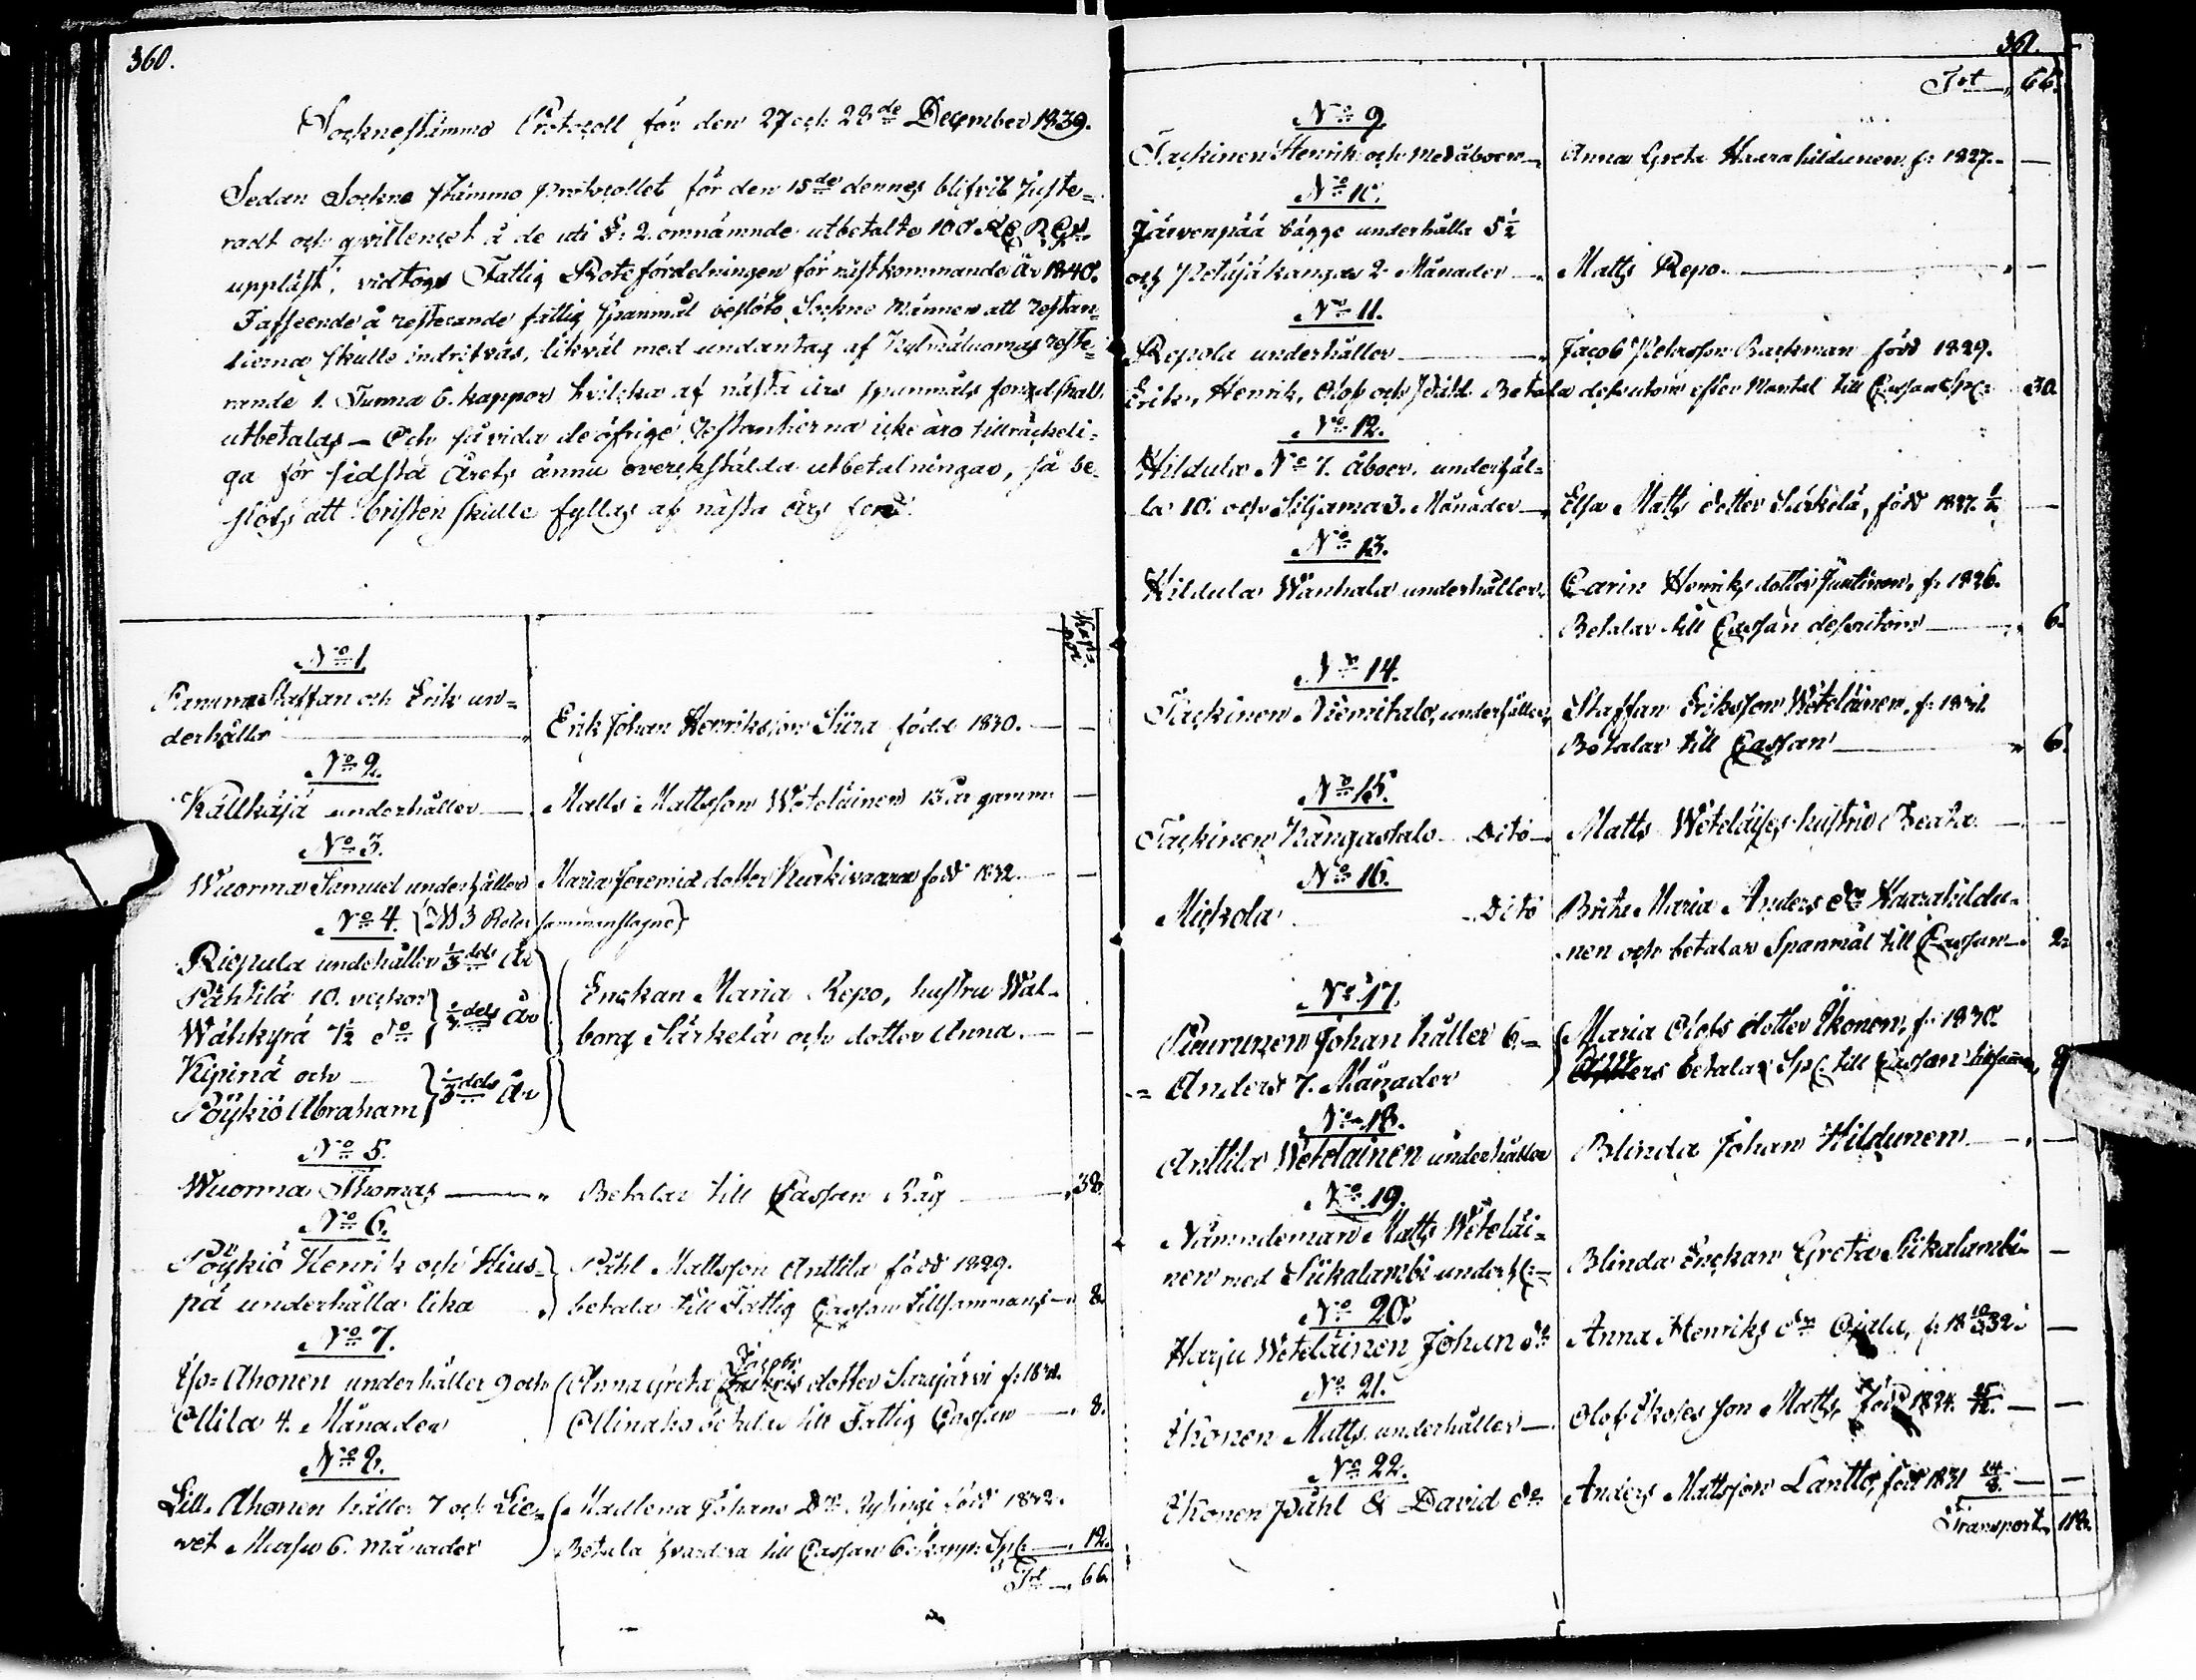 360.
Sockenstämmo Protocoll för den 27 och 28de December 1839.
Sedan Sockne stämmo protocollet för den 15de dennes blifvit juste=
radt och qvittencet å de uti §. 2. omnämnde utbetalte 100 Rub. Rgs.
uppläst, vidtogs Fattig Rotefördelningen för nästkommande År 1840.
I afseende å resterande fattig Spanmål beslöto Sockne männen att restan=
tierna skulle indrifvas, likväl med undantag af resте=
rande 1. Tunna 6. kappor hvilcka af nästa års spanmåls fond skall
utbetalas — Och såvida de öfrige restantierna icke äro tillräckeli=
ga för sidsta Årets ännu överckställda utbetalningar, så be=
slöts att bristen skulle fyllas af nästa års fond.
Kapp.
No 1.
Staffan och Erik un=
derhålla — Erik Johan Henriksson Siira född 1830. —
No 2.
Kallkäjä underhåller — Matts Mattsson Weteläinen 13 år gamm. —
No 3.
Wuorma Samuel underhåller Maria Jeremiæ dotter Kurkivaara född 1832. —
No 4. (3 Rotar sammanslagne)
Riepula undehåller 1/3 dels År
Pähtilä 10. veckor } 1/3 dels År
Wälikyrä 7 1/2 do
Enckan Maria Repo, hustru Wal=
borg Särkelä och dotter Anna. —
Kipinä och } 1/3 dels År
Pöykiö Abraham
No 5.
Wuorma Thomas — Betalar till Cassan Råg — 38
No 6.
Pöykiö Henrik och Hius= Påhl Mattsson Anttila född 1829.
pä underhålla lika betala till Fattig Cassan tillsammans — 8.
No 7.
Yso= Ahonen underhåller 9 och Anna Greta Jacobs dotter Sarajärvi f. 18
Ollila 4. Månader till Fattig Cassan — 8.
No 8.
Lill. Ahonen håller 7 och Lie= Madlena Johans Dr. född 1832.
vet Maasu 6. månader Betala hvardera till Cassan 6. kapp. Sp. — 12.
Trt — 66.
361.
Trt — 66.
No 9
Tackinen Henrik och Medåboer — Anna Greta Haarahildunen f. 1827. —
No 10.
Järvenpää bägge underhålla 5 1/2
och Petäjäkangas 2 Månader — Matts Repo. —
No 11.
Repola underhåller — Jacob Petersson Backman född 1829.
Erik, Henrik, Olof och Påhl Betala dessutom efter Mantal till Cassan Sp. 30.
No 12.
Hildula No 7. åboer. underhål=
la 10. och Siljama 3. Månader — Elsa Matts dotter Särkelä, född 1827. —
No 13.
Hildula Wanhala underhåller Carin Henriks dotter Juntinen, f. 1826.
Betalar till Cassan dessutom — 6.
No 14.
Tackinen Niemitalo, underhåller Staffan Eriksson Weteläinen, f. 18
Betalar till Cassan — 6.
No 15.
Tackinen Kangastalo Dito — Matts Weteläises hustru Beata. —
No 16.
Mickola Dito Brita Maria Anders dr Haarahildu=
nen och betalar Spanmål till Cassan — 2
No 17.
Puurunen Johan håller 6. = Maria Olofs dotter Ikonen, f. 1830.
= Anders 7. Månader betalar Sp. till Cassan tillsamm.
No 18.
Anttila Wetelainen underhåller Blinda Johan Hildunen —
No 19.
Nämndeman Matts Weteläi=
nen med Siikalambi underh. — Blinda Enckan Greta Siikalambi —
No 20.
Harju Weteläinen Johan do Anna Henriks dr Ojala, f. 18 10/3 32. —
No 21.
Ikonen Matts underhåller — Olof Ikoses son Matts, född 1824. —
No 22.
Ikonen Påhl & David do Anders Mattsson Lantto, född 1831 14/8. —
Transport, 118.